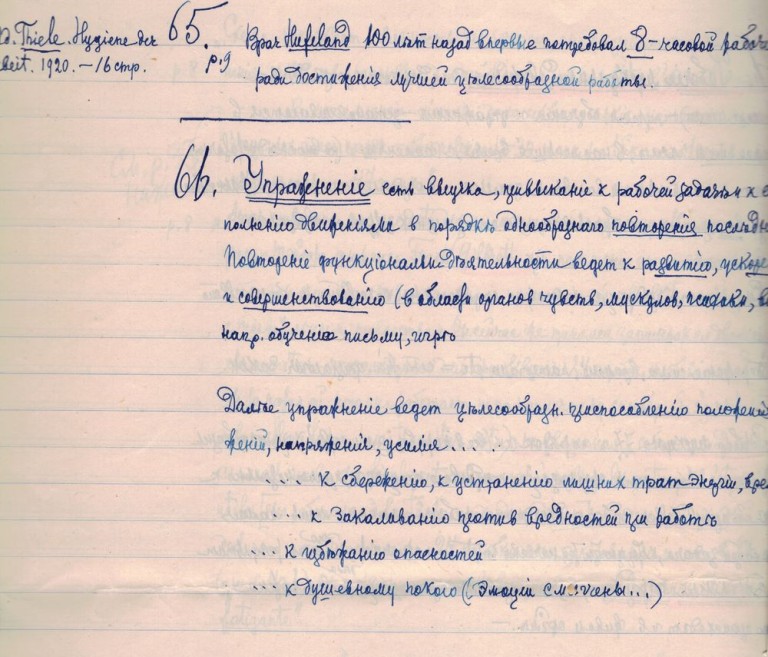 D. Thiele. Hygiene der
Arbeit. 1920. — 16 стр.
65. Врач Hufeland 100 лѣт назад впервые потребовал 8-часовой рабоч
р 9 ради достиженія лучшей цѣлесообразной работы.
66. Упражненіе есть выучка, привыканіе к рабочей задачѣ и к
полненію движеніями в порядкѣ однообразнаго повторенія послѣдн
Повтореніе функціональн. дѣятельности ведет к развитію, ускоре
и совершенствованію (в области органов чувств, мускулов, психики,
напр. обученіе письму, игрѣ
Далѣе упражненіе ведет цѣлесообразн. приспособленію положеній
женій, напряженія, усилія....
.... к сбереженію, к устраненію лишних трат энергіи, вре
.... к закаливанію против вредностей при работѣ
.... к избѣжанію опасностей
.... к душевному покою (эмоціи смягчены...)